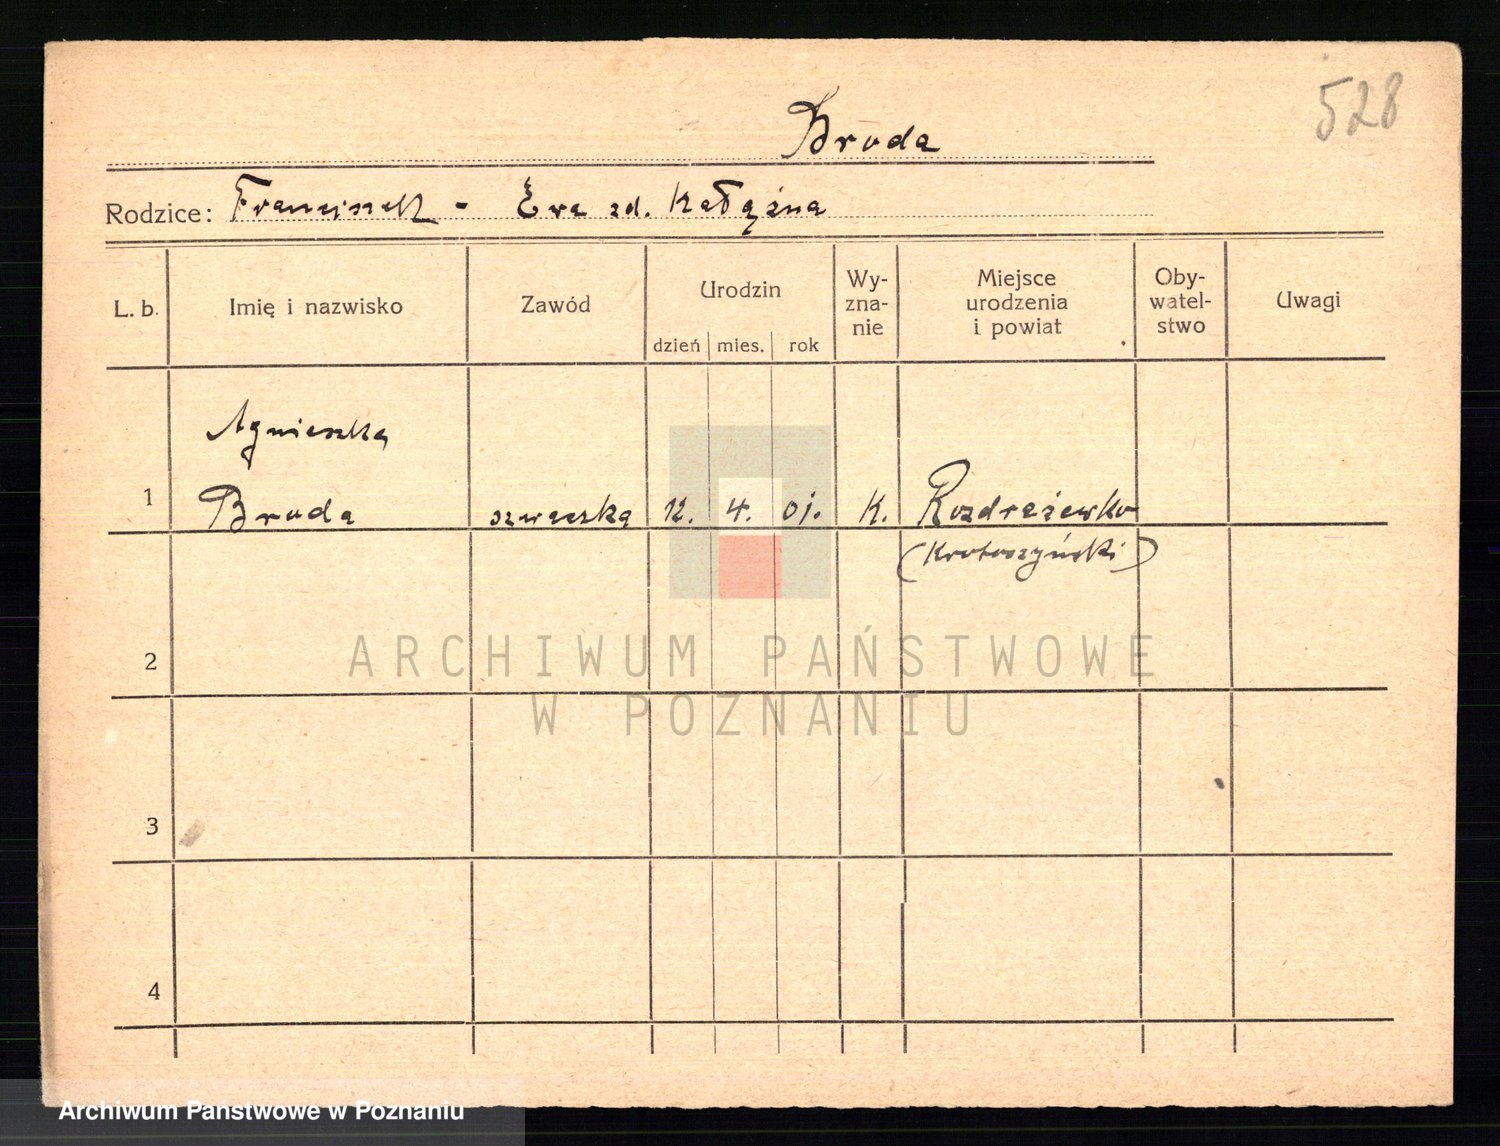 528
Broda
Rodzice: Franciszek - Ewa zd. Kałążna
L. b. Imię i nazwisko Zawód Urodzin Wy-zna-nie Miejsce urodzenia i powiat Oby-watel-stwo Uwagi
dzień mies. rok
Agnieszka
1 Broda szwaczka 12. 4. 01. K. Rozdrażewko
(Krotoszyński)
2
ARCHIWUM PAŃSTWOWE
W POZNANIU
3
4
Archiwum Państwowe w Poznaniu